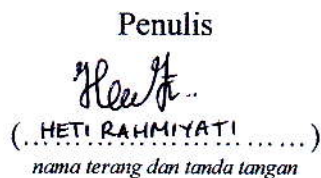 Penulis
(..HETI RAHMIYATI..........)
nama terang dan tanda tangan